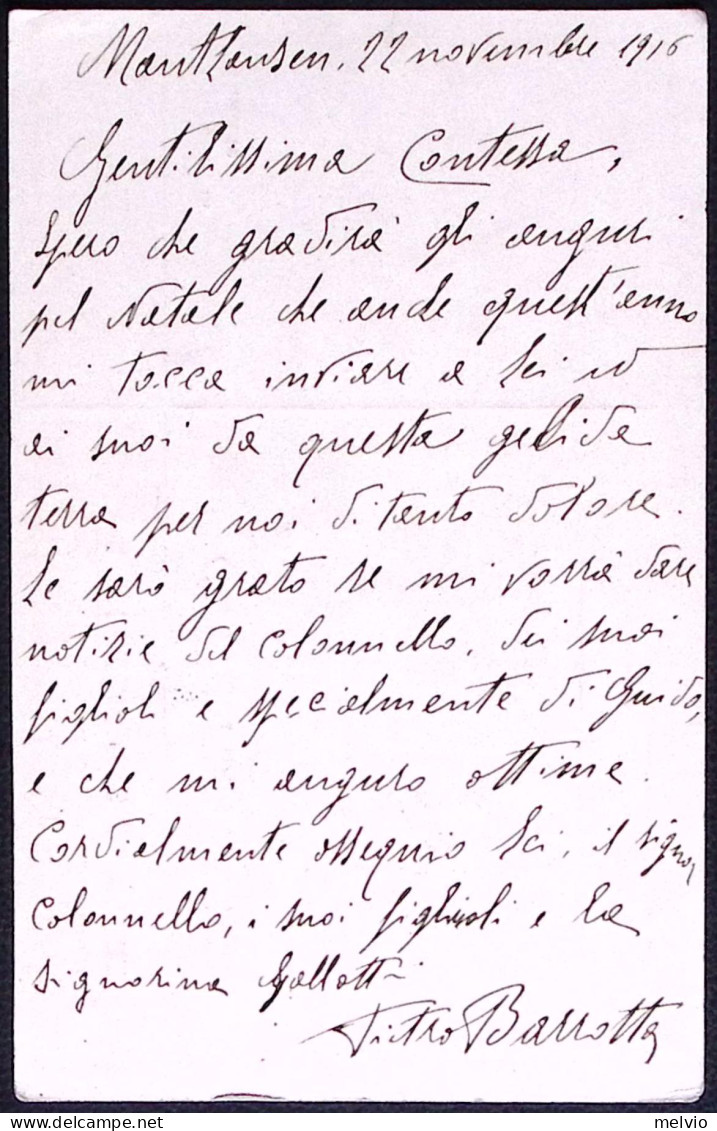 Mauthausen, 22 novembre 1916
Gentilissima Contessa,
spero che gradirà gli auguri
pel Natale che anche quest'anno
mi tocca inviare a Lei ed
ai suoi da questa gelida
terra per noi di tanto dolore.
Le sarò grato se mi vorrà dare
notizie del colonnello, dei suoi
figlioli e specialmente di Guido,
e che mi auguro ottime.
Cordialmente ossequio Lei, il signor
Colonnello, i suoi figlioli e la
signorina Gallotti
Pietro Barrotta
melvio